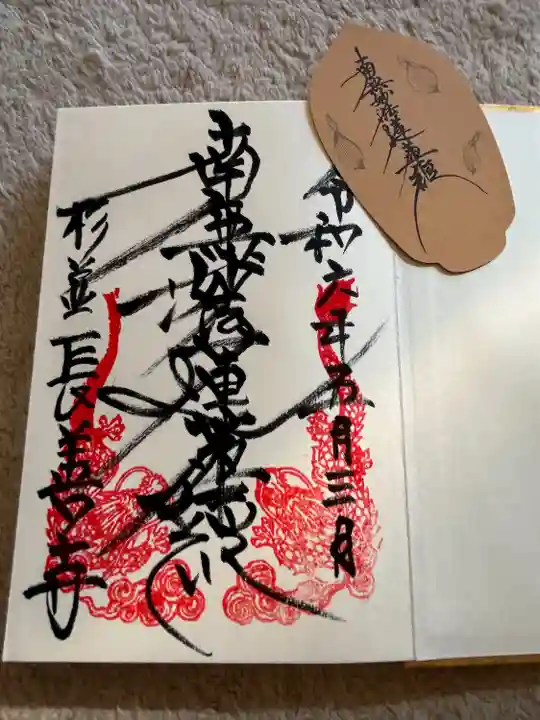 令和六年五月三日
南無妙法蓮華経
杉並長善寺
南無妙法蓮華経